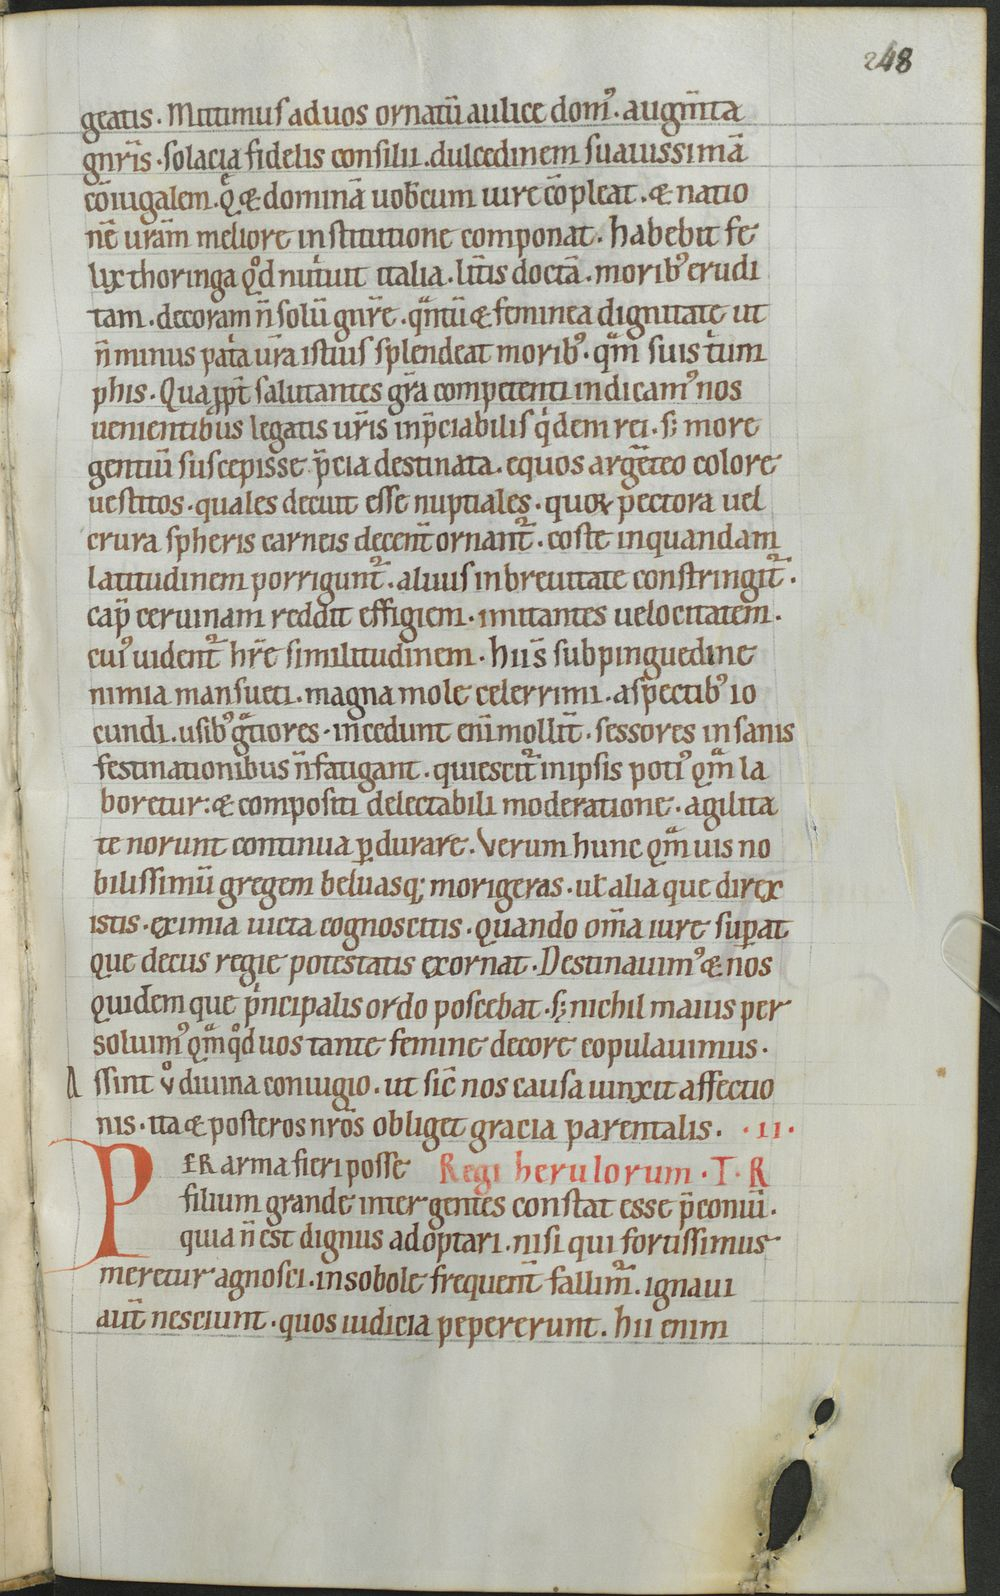 248
geatis. Mittimus ad uos ornatū aulice domꝰ. augm̄ta
gn̄ris. solacia fidelis consilii. dulcedinem suauissimā
cōiugalem. Qͤ & dominā uob̄cum iure cōpleat. & natio
nē urām meliore institutione componat. habebit fe
lix thoringa qͦd nutͥuit italia. litt̄is doctā. moribꝰ erudi
tam. decoram n̄ solū gn̄re. qͣntū & feminea dignitate ut
n̄ minus patͥa ur̄a istius splendeat moribꝰ. qͣm suis tͥum
phis. Qua ꝓpt̄ salutantes gr̄a competenti indicamꝰ nos
uenientibus legatis ur̄is inp̄ciabilis qͥdem rei. s; more
gentiū suscepisse p̄cia destinata. equos argēteo colore
uestitos. quales decuit esse nuptiales. quoꝝ pectora uel
crura spheris carneis decent̄ ornant᷑. coste in quandam
latitudinem porrigunt᷑. aluus in breuitate constringit᷑.
cap̄ ceruinam reddit effigiem. imitantes uelocitatem.
cuiꝰ uident᷑ hr̄e similitudinem. hii s̄ sub pinguedine
nimia mansueti. magna mole celerrimi. aspectibꝰ io
cundi. usibꝰ gͣtiores. incedunt eni mollit̄. sessores insanis
festinationibus n̄ fatigant. quiescit᷑ in ipsis potiꝰ qͣm la
boretur: & compositi delectabili moderatione. agilita
te norunt continua ꝑdurare. Verum hunc qͣmuis no
bilissimū gregem beluasq; morigeras. ul̄ alia que direx
istis. eximia uicta cognoscitis. quando om̄a iure suꝑat
que decus regie potestatis exornat. Destinauimꝰ & nos
quidem que pͥncipalis ordo poscebat. s; nichil maius per
soluimꝰ qͣm qͦd uos tante femine decore copulauimus.
A ssint uͦ diuina coniugio. ut sic̄ nos causa uinxit affectio
nis. ita & posteros nr̄os obliget gracia parentalis. .II.
PER arma fieri posse Regi herulorum. T. R
filium grande inter gentes constat esse p̄coniū.
quia n̄ est dignus adoptari. nisi qui fortissimus
meretur agnosci. in sobole frequent̄ fallim᷑. ignaui
aut̄ nesciunt. quos iudicia pepererunt. hii enim